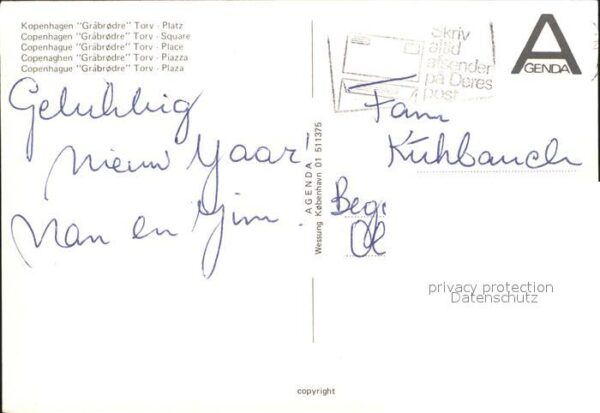 Kopenhagen "Gråbrødre" Torv - Platz
Copenhagen "Gråbrødre" Torv - Square
Copenhague "Gråbrødre" Torv - Place
Copenaghen "Gråbrødre" Torv - Piazza
Copenhague "Gråbrødre" Torv - Plaza
Gelukkig
Nieuw Yaar!
Nan en Yim.
AGENDA
Wessung København 01 511375
Skriv
altid
afsender
på Deres
post
AGENDA
Fam
Kühbauch
Beg.
Ol
privacy protection
Datenschutz
copyright